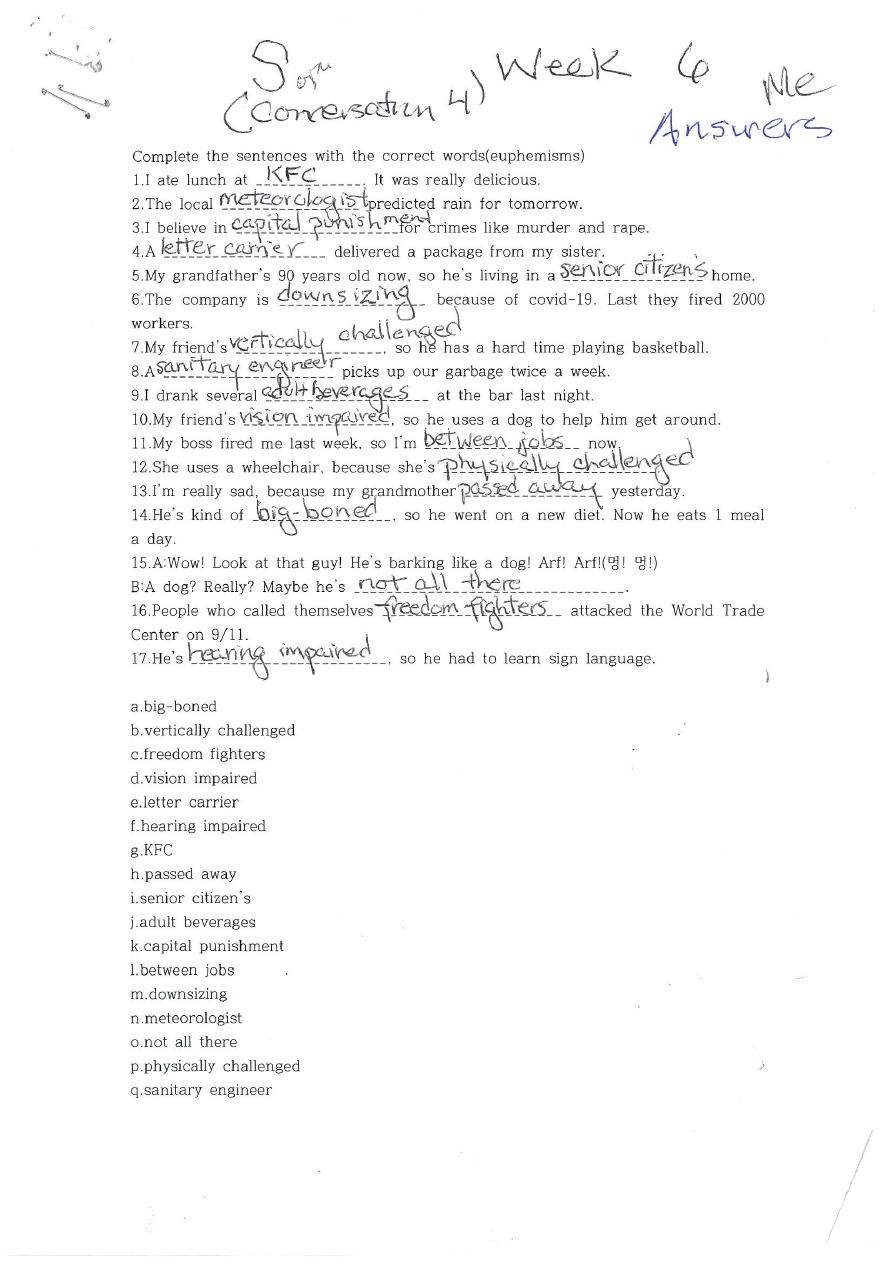 Week 6
(Conversation 4)
Me
Answers
Complete the sentences with the correct words(euphemisms)
1.I ate lunch at KFC. It was really delicious.
2.The local meteorologist predicted rain for tomorrow.
3.I believe in capital punishment for crimes like murder and rape.
4.A letter carrier delivered a package from my sister.
5.My grandfather's 90 years old now, so he's living in a senior citizens home.
6.The company is downsizing because of covid-19. Last they fired 2000
workers.
7.My friend's vertically challenged, so he has a hard time playing basketball.
8.A sanitary engineer picks up our garbage twice a week.
9.I drank several adult beverages at the bar last night.
10.My friend's vision impaired, so he uses a dog to help him get around.
11.My boss fired me last week, so I'm between jobs now.
12.She uses a wheelchair, because she's physically challenged
13.I'm really sad, because my grandmother passed away yesterday.
14.He's kind of big-boned, so he went on a new diet. Now he eats 1 meal
a day.
15.A:Wow! Look at that guy! He's barking like a dog! Arf! Arf!(멍! 멍!)
B:A dog? Really? Maybe he's not all there.
16.People who called themselves freedom fighters attacked the World Trade
Center on 9/11.
17.He's hearing impaired, so he had to learn sign language.
a.big-boned
b.vertically challenged
c.freedom fighters
d.vision impaired
e.letter carrier
f.hearing impaired
g.KFC
h.passed away
i.senior citizen's
j.adult beverages
k.capital punishment
l.between jobs
m.downsizing
n.meteorologist
o.not all there
p.physically challenged
q.sanitary engineer